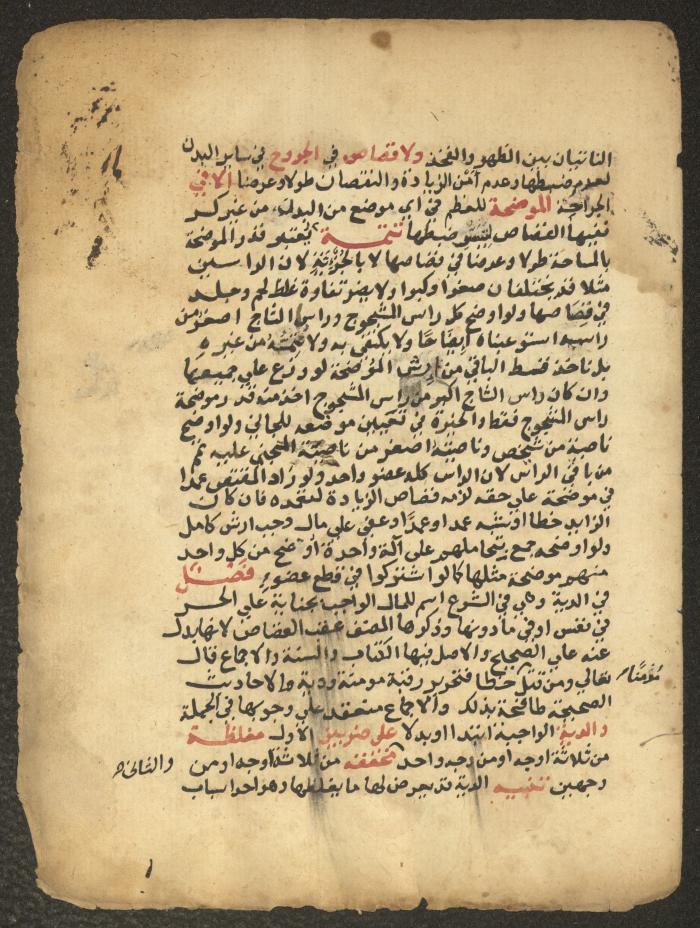 الناتيان بين الظهر والفخذ ولا قصاص في الجروح في ساير البدن
لعدم ضبطها وعدم آمن الزيادة والنقصان طولا وعرضا الا في
الجراحة الموضحة للعظم في اي موضع من البدن من غير كسر
ففيها القصاص لتيسر ضبطها تتمة يعتبر قدر الموضحة
بالمساحة طولا وعرضا في قصاصها لا بالجزئية لان الراسين
مثلا قد يختلفان صغرا وكبرا ولا يضر تفاوة غلظ لحم وجلد
في قصاصها ولو اوضح كل راس المشجوج وراس الشاج اصغر من
راسه استوعبناه ايضاحا ولا يكتفى به ولا نتممه من غيره
بل ناخذ قسط الباقي من ارش الموضحة لو وزع على جميعها
وان كان راس الشاج اكبر من راس المشجوج اخذ منه قدر موضحة
راس المشجوج فقط والخيرة في تعيين موضعه للجاني ولو اوضح
ناصية من شخص وناصيته اصغر من ناصية المجني عليه تمم
من باقي الراس لان الراس كله عضو واحد ولو زاد المقتص عمدا
في موضحة على حقه لزمه قصاص الزيادة لتعمده فان كان
الزايد خطا او شبه عمد او عمدا وعفي على مال وجب ارش كامل
ولو اوضحه جمع بتحاملهم على آلة واحدة اوضح من كل واحد
منهم موضحة مثلها كما لو اشتركوا في قطع عضو فصل
في الدية وهي في الشرع اسم للمال الواجب بجناية على الحر
في نفس او في ما دونها وذكرها المصنف عقب القصاص لانها بدل
عنه على الصحيح والاصل فيها الكتاب والسنة والاجماع قال
تعالى ومن قتل خطا فتحرير رقبة مومنة ودية والاحاديث
مؤمنا
الصحيحة طافحة بذلك والاجماع منعقد على وجوبها في الجملة
والدية الواجبة ابتدا او بدلا على ضربين الاول مغلظة
من ثلاثة اوجه او من وجه واحد مخففة من ثلاثة اوجه او من
والثاني
وجهين تنبيه الدية قد يعرض لها ما يغلظها وهو احد اسباب